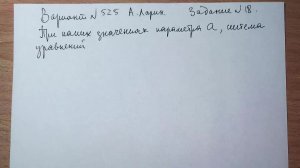 Вариант №525 А. Ларин. Задание №18.
При каких значениях параметра а, система
уравнений